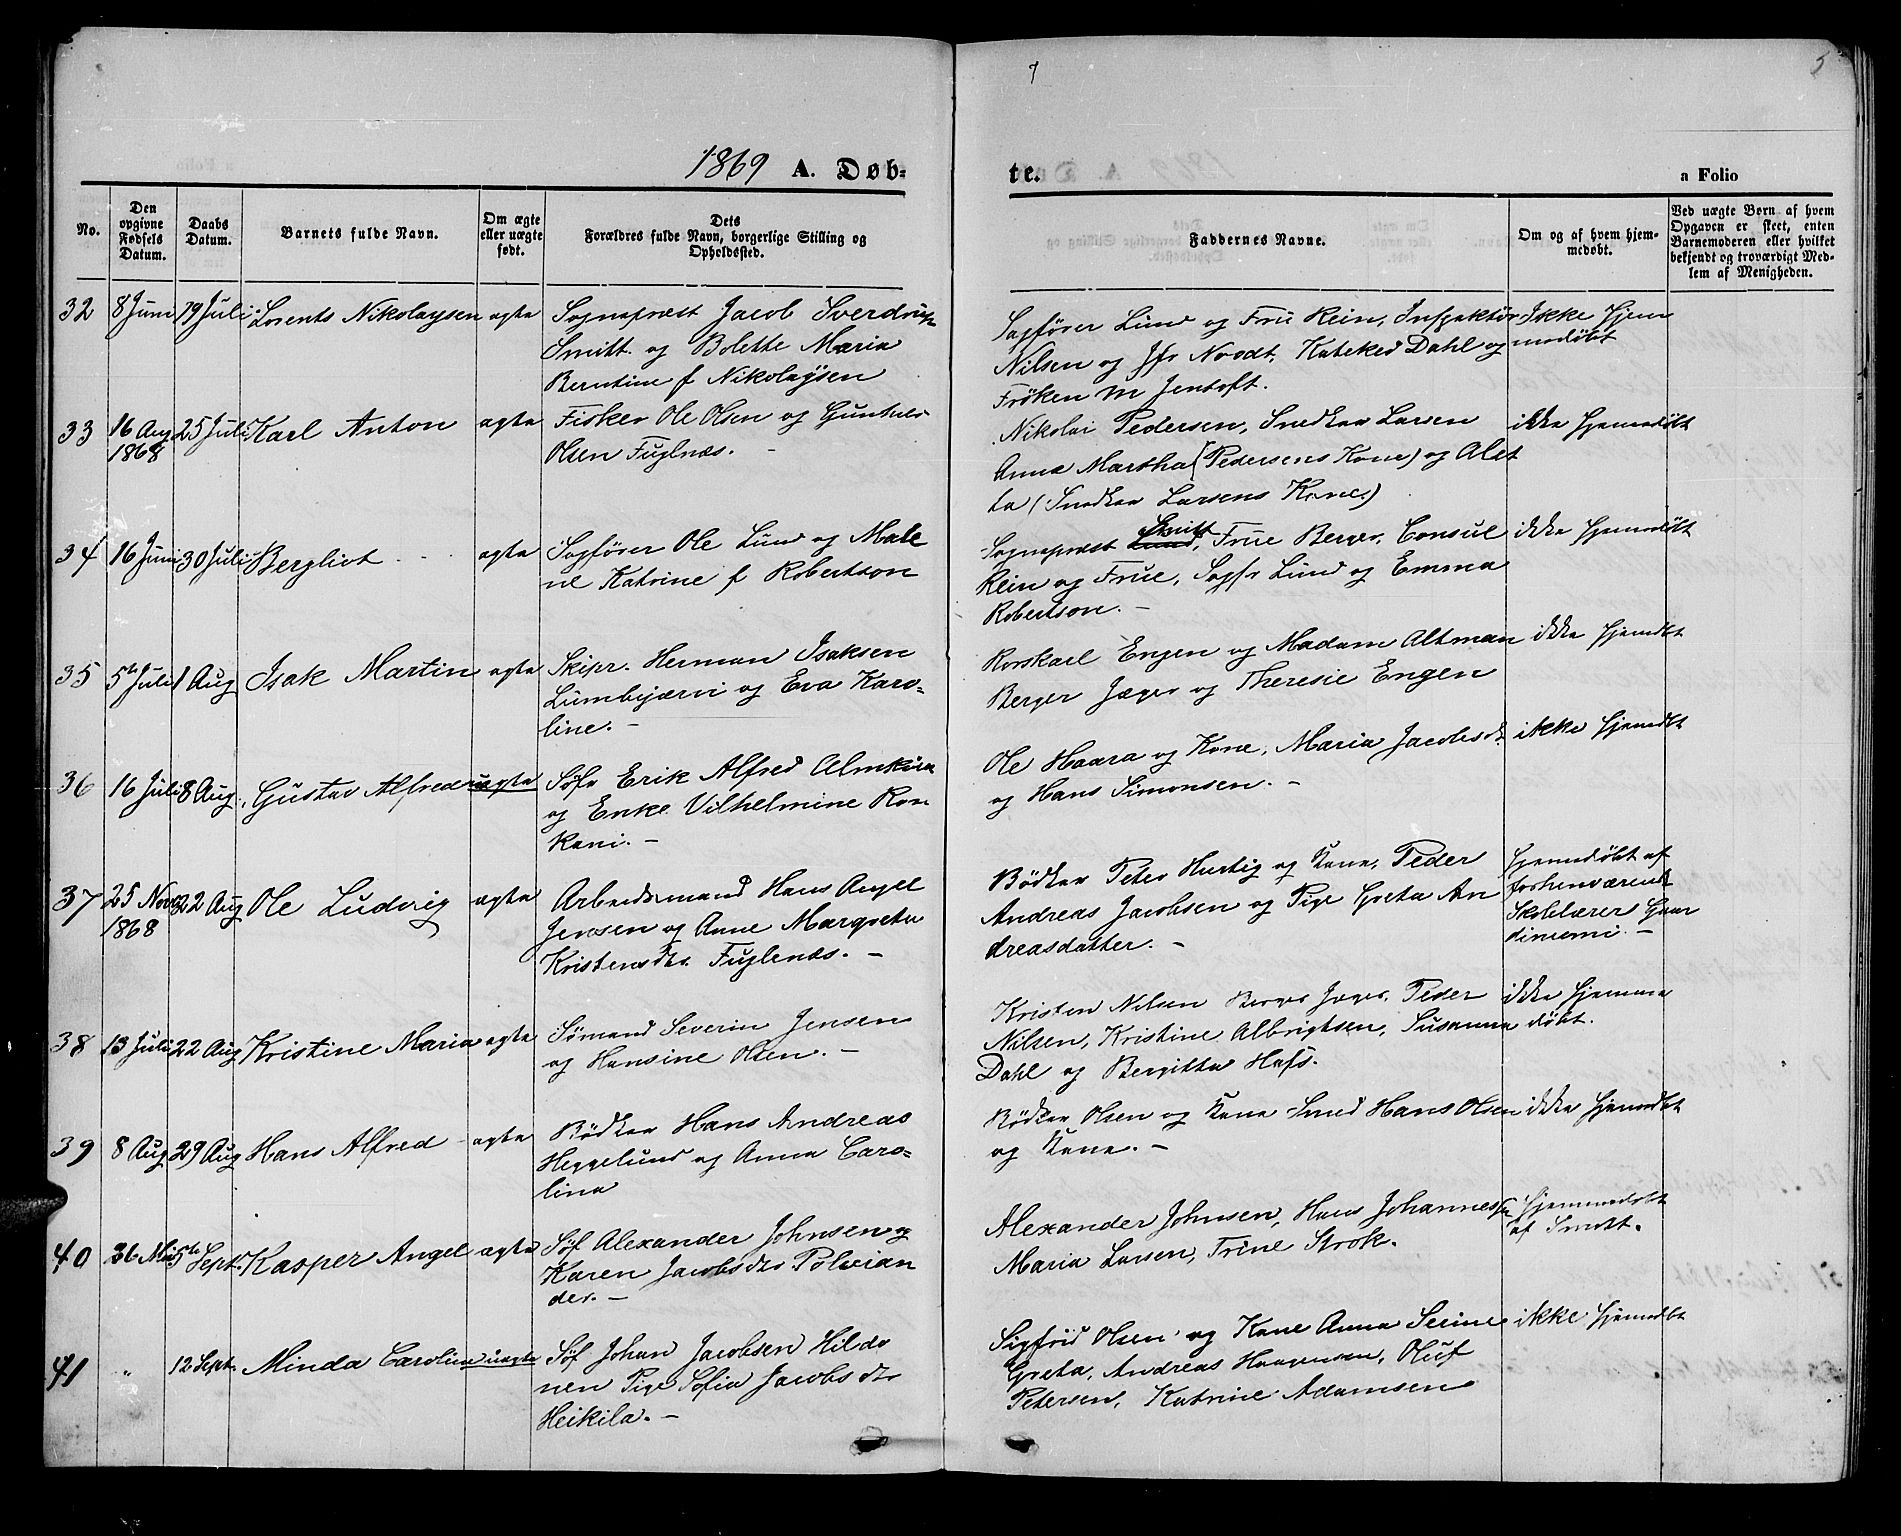 1869 A. Døb-
te.
a Folio
5
No.
Den
opgivne
Fødsels
Datum.
Daabs
Datum.
Barnets fulde Navn.
Om ægte
eller uægte
født.
Dets
Forældres fulde Navn, borgerlige Stilling og
Opholdssted.
Faddernes Navne.
Om og af hvem hjem-
medøbt.
Ved uægte Børn af hvem
Opgaven er skeet, enten
Barnemoderen eller hvilket
bekjendt og troværdigt Med-
lem af Menigheden.
32 8 Juni 19 Juli Lorents Nikolaysen ægte Sognepræst Jacob Sverdrup
Smitt og Bolette Maria
Berntine f Nikolaysen
Sagfører Lund og Frue Rein, Inspektør
Nilsen og Jfr Noodt, Kateket Dahl og
Frøken M Jentoft.
Ikke hjem
medøbt
33 16 Aug 25 Juli Karl Anton ægte Fisker Ole Olsen og
1868 Olsen Fuglnæs. -
Nikolai Pedersen, Snedker Larsen
Anna Martha (Pedersens Kone) og Alet
ta (Snedker Larsens Kone.)
ikke hjemmedøbt
34 16 Juni 30 Juli Bergliot ægte Sagfører Ole Lund og Male
ne Katrine f Robertson
Sognepræst Lund Smitt, Frue Berger, Consul
Rein og Frue, Sagfr Lund og Emma
Robertson. -
ikke hjemmedøbt
35 5te Juli 1 Aug Isak Martin ægte Skipr. Herman Isaksen
Lumbijærvi og Eva Karo-
line. -
Korskarl Engen og Madam Altman
Berger Jæger og Theresie Engen
ikke hjemdbt
36 16 Juli 8 Aug. Gustav Alfred uægte Søfr Erik Alfred
og Enke Vilhelmine Kon
kani. -
Ole Haara og Kone, Maria Jacobsd.
og Hans Simonsen. -
ikke hjemdbt
37 25 Nov 22 Aug Ole Ludvig ægte Arbeidsmand Hans Angel
1868 Jensen og Anne Margreta
Kristensdtr. Fuglenæs. -
Bødker Peter Hurtig og Kone, Peder
Andreas Jacobsen og Pige Greta An
dreasdatter. -
hjemmedøbt af
forhenværende
Skolelærer
38 13 Juli 22 Aug Kristine Maria ægte Sømand Severin Jensen
og Hansine Olsen. -
Kristen Nilsen Berger Jæger, Peder
Nilsen, Kristine Albrigtsen, Susanna
Dahl og Bergitta Hafs.
ikke hjemme
døbt.
39 8 Aug 29 Aug Hans Alfred ægte Bødker Hans Andreas
Heggelund og Anna Caro-
lina
Bødker Olsen og Kone Smed Hans Olsen
og Kone. -
ikke hjemdbt
40 26 Mai 5te Sept. Kasper Angel ægte Søf Alexander Johnsen og
Karen Jacobsdtr Polvian
der. -
Alexander Johnsen, Hans Johannessn
Maria Larsen, Trine Strok.
hjemmedøbt
af Smitt.
41 " 12 Sept. Minda Carolina uægte Søf Johan Jacobsen Hildo
nen Pige Sofia Jacobsdtr
Heikila. -
Sigfrid Olsen og Kone Anna Serine
Greta, Andreas Haagensen, Oluf
Petersen, Katrine Adamsen
ikke hjemdbt